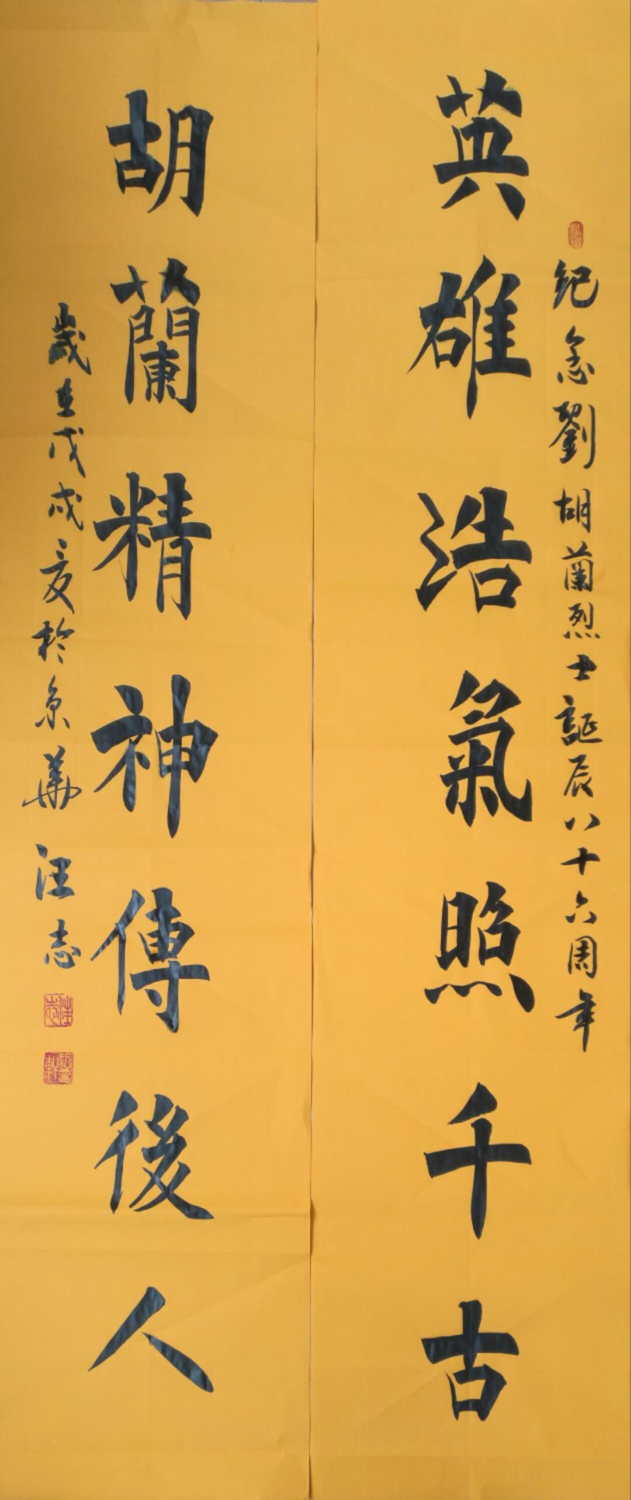 紀念劉胡蘭烈士誕辰八十六周年
英雄浩氣照千古
胡蘭精神傳後人
歲在戊戌夏於京華汪志